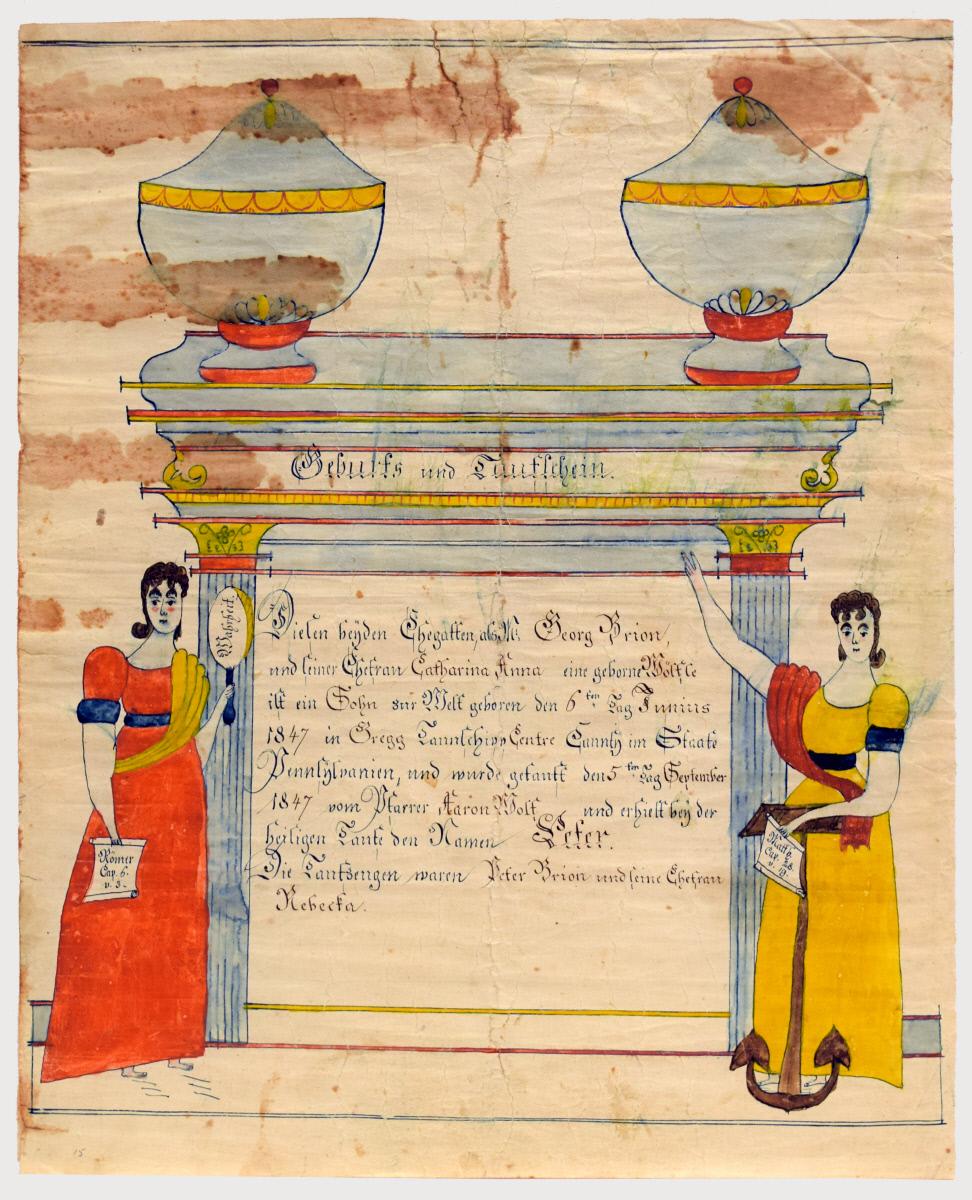 Geburts und Taufschein.
Wahrheit.
Diesen beyden Ehegatten, als M. Georg Brion,
und seiner Ehefrau Catharina Anna eine geborne Wölfle
ist ein Sohn zur Welt geboren den 6ten Tag Junius
1847 in Gregg Taunschipp Centre Caunty im Staate
Pennsylvanien, und wurde getauft den 5ten Tag September
1847 vom Pfarrer Aaron Wolf und erhielt bey der
heiligen Taufe den Namen Peter.
Die Taufzeugen waren Peter Brion und seine Ehefrau
Rebecka.
Römer
Cap. 6.
v. 3.
Matt.
Cap. 28
v. 19.
15